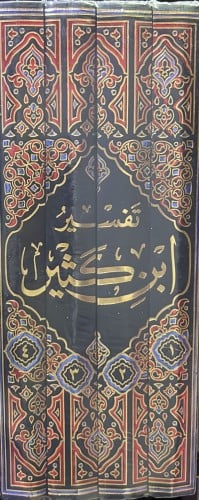 تفسير
ابن كثير
١
٢
٣
٤